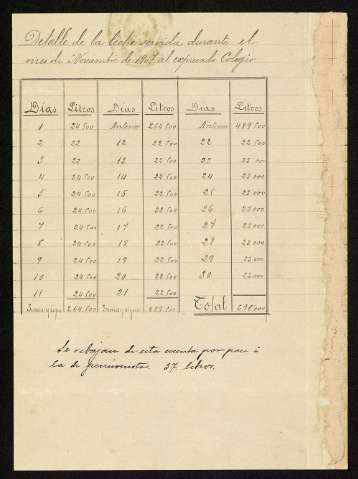 Detalle de la leche servida durante el
mes de Noviembre de 1907 al expresado Colegio
Días Litros Días Litros Días Litros
1 24 500 Anterior 264 500 Anterior 489 500
2 22 12 22 500 22 22 500
3 22 13 22 500 23
4 24 500 14 22 500 24 23 000
5 24 500 15 22 500 25 23 000
6 24 500 16 22 500 26 23 000
7 24 500 17 22 500 27 23 000
8 24 500 18 22 500 28 23 000
9 24 500 19 22 500 29 23 000
10 24 500 20 22 500 30 23 000
11 24 500 21 22 500
Suma y sigue 264 500 Suma y sigue 489 500 Total
Se rebajan de esta cuenta por pase á
la de 37 litros.